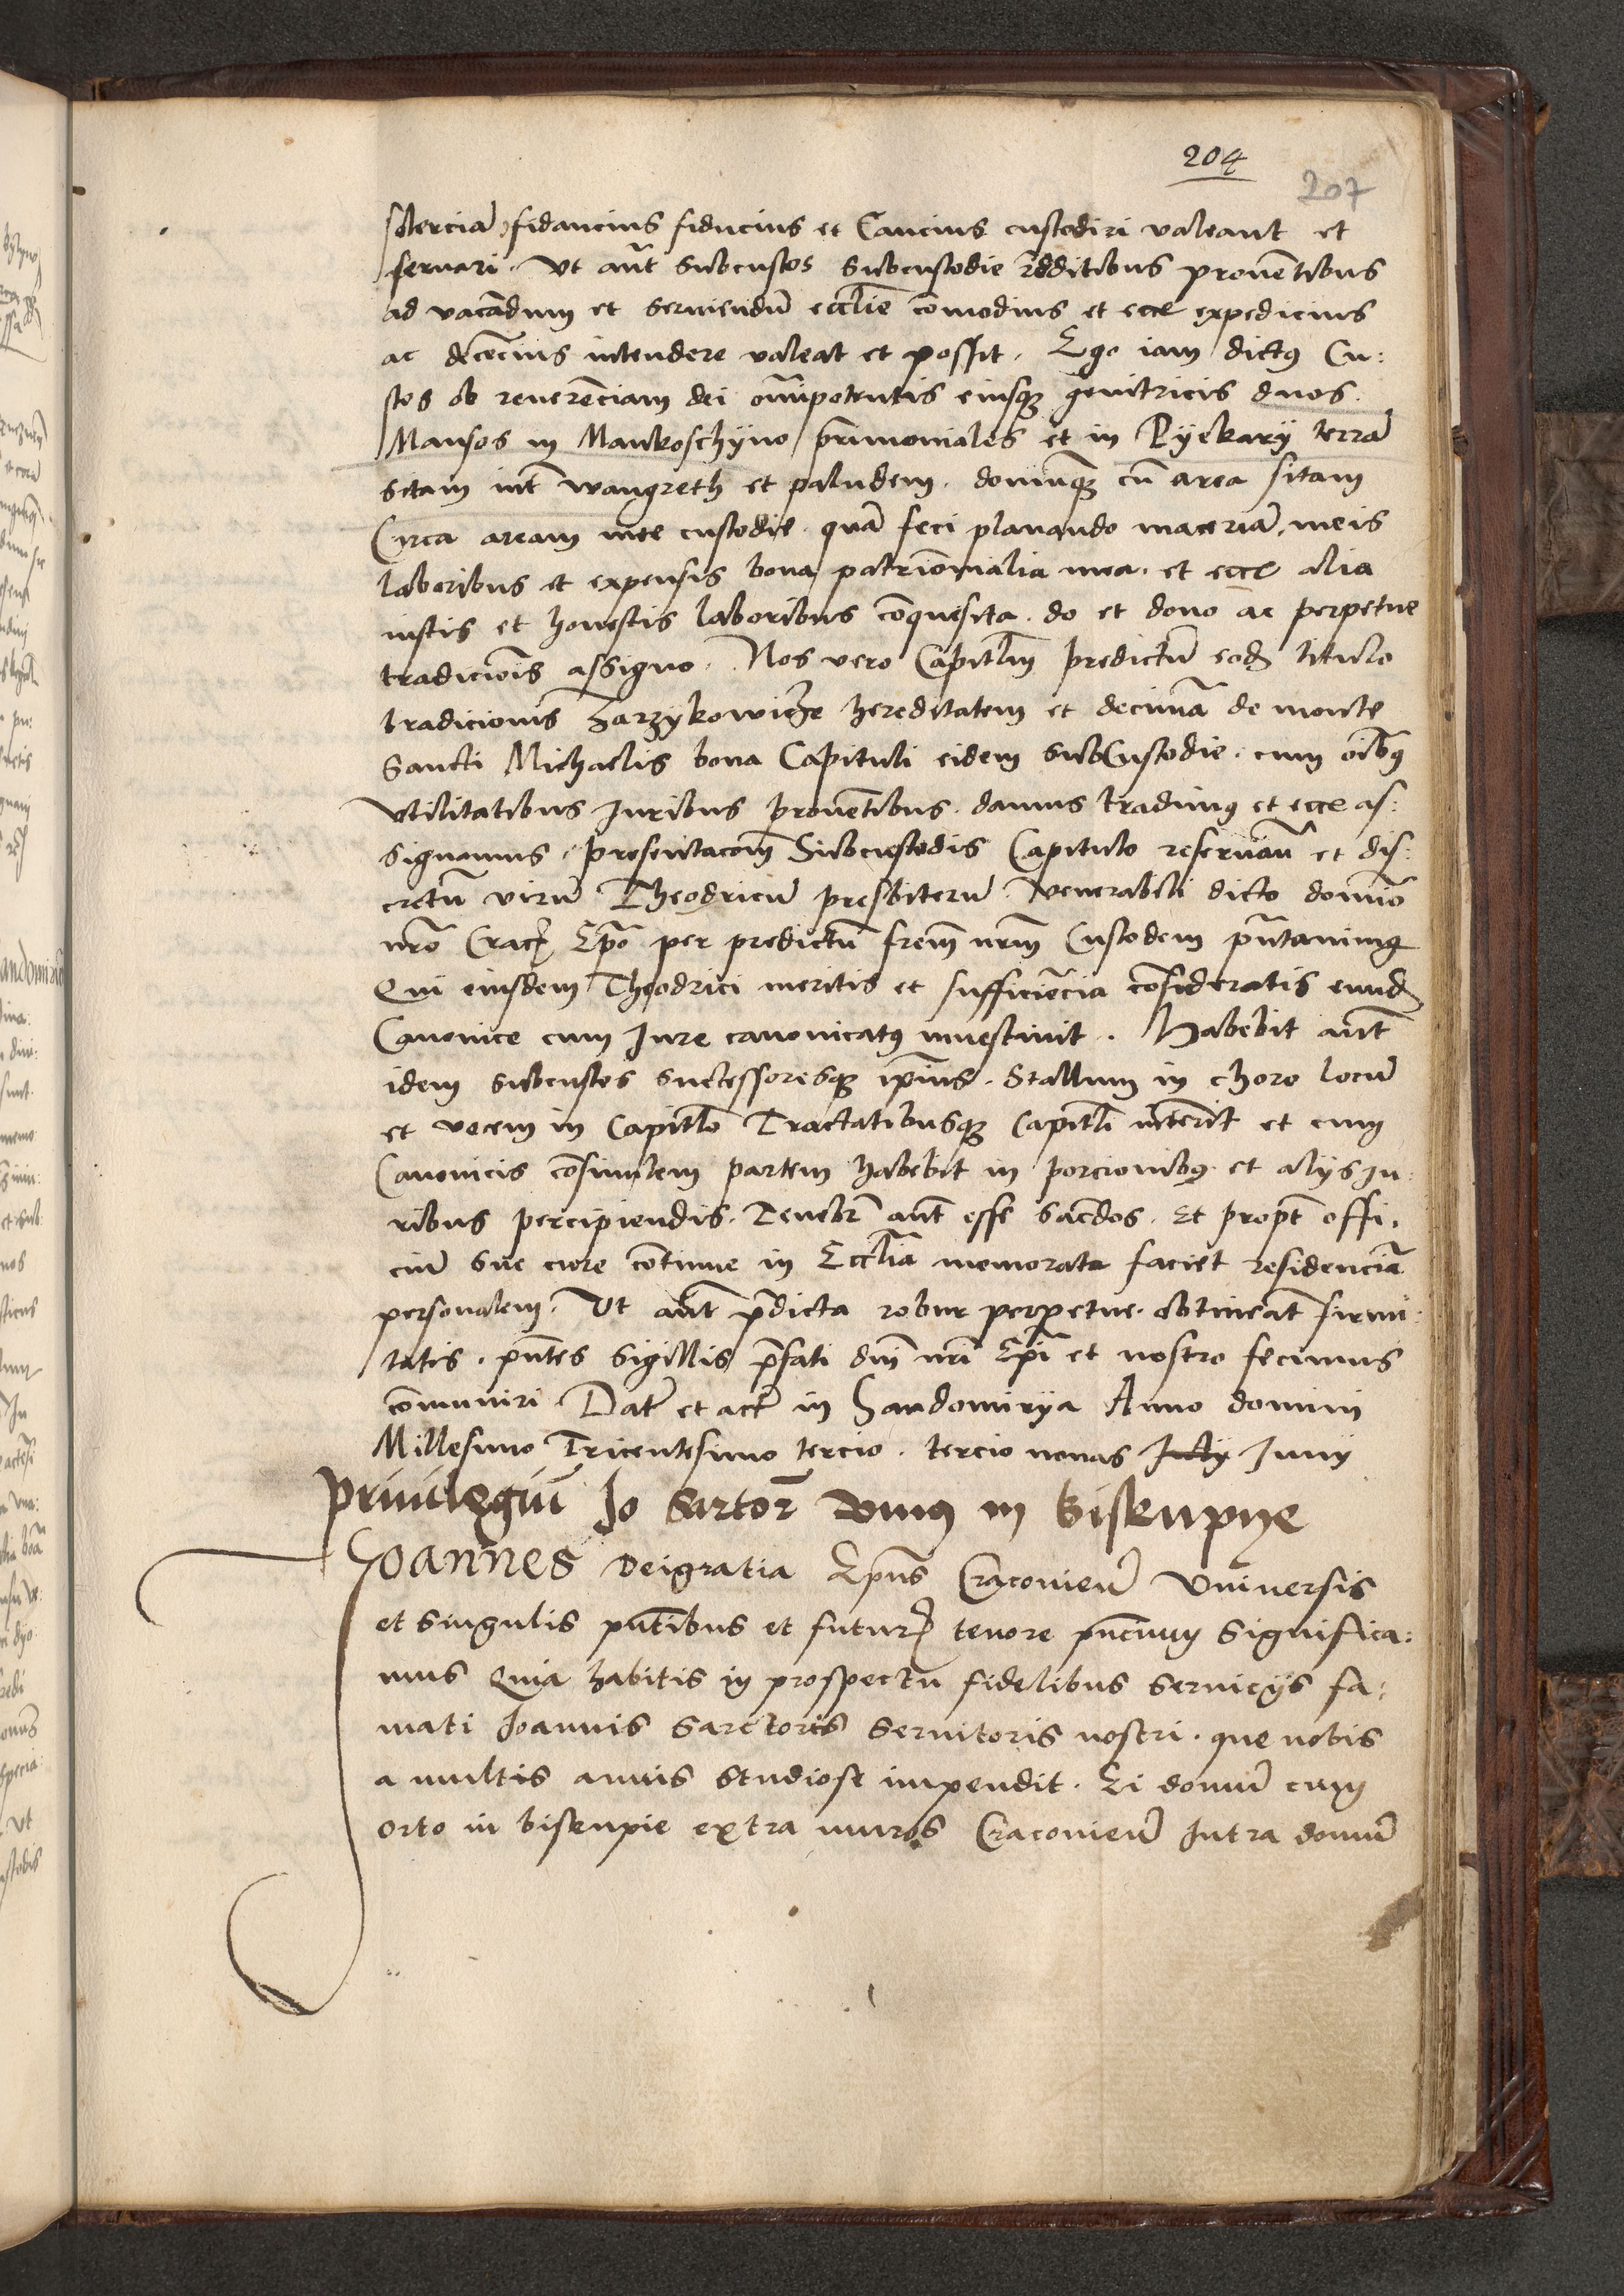 204
207
solerciā fidancius fiducius et Caucius custodiri valeant et
seruari. Vt aūt Subcustos Subcustodie r̄dditibus prouētibus
ad vacādum et seruiendū eccl̄ie cōmodius et ecce expedicius
ac decēcius intendere valeat et possit. Ego iam dictꝰ Cu:
stos ob reuerēciam dei om̄ipotentis eiusqꝫ genitricis duos
Mansos in Mankoschyno p̄rimoniales et in Pyekary terrā
sitam int̄ Wangreth et paludem. domūqꝫ cū area sitam
Circa aream mee custodie. quā feci planando maceriā, meis
laboribus et expensis bona patrīonialia mea. et ecce alia
iustis et honestis laboribus cōquesita. do et dono ac perpetue
tradiciōis assigno. Nos vero Capitl̄m predictū eodꝫ titulo
tradicionis Zarzykowicze hereditatem et decimā de monte
Sancti Michaelis bona Capituli eidem SubCustodie. cum oībꝰ
vtilitatibus Iuribus prouētibus. damus tradimꝰ et ecce as:
signamus. presentacōm Subcustodis Capitulo reseruān̄ et dis:
cretū virū Theodricū presbiterū Venerabili dicto domīo
nr̄o Cracꝭ Ep̄o per predictū fr̄em nr̄m Custodem pn̄tauimꝰ
Qui eiusdem Theodrici meritis et sufficiēcia cōsideratis eundꝫ
Canonice cum Iure canonicatꝰ inuestiuit. Habebit aūt
idem subcustos successoresqꝫ ip̄ius. Stallum in choro locū
et vocem in Capitl̄o Tractatibusqꝫ Capitl̄i int̄erit et cum
Canonicis cōsimilem partem habebit in porcionibꝰ et alijs Iu:
ribus percipiendis. Tenebr̄ aūt esse sac̄dos. Et propt̄ offi:
ciū sue cure cōtinue in Eccl̄ia memorata faciet residenciā
personalem. Vt aūt p̄dicta robur perpetue. obtineāt firmi:
tatis. pn̄tes sigillis p̄fati dn̄i nr̄i Ep̄i et nostro fecimus
cōmuniri Dat̄ et act̄ in Sandomirya Anno domini
Millesimo Tricentesimo tercio. tercio nonas July Iunij
Priuilegiū Io Sartor̄ domꝰ in biskupye
Joannes Deigratia Ep̄us Cracouien̄ Vniuersis
et singulis pn̄tibus et futurꝭ tenore pn̄cium significa:
mus Quia habitis in prospectu fidelibus seruicijs fa:
mati Joannis Sarctoris seruitoris nostri. que nobis
a multis annis studiose impendit. Ei domū cum
orto in biskupie extra muros Cracouien̄ Intra domū